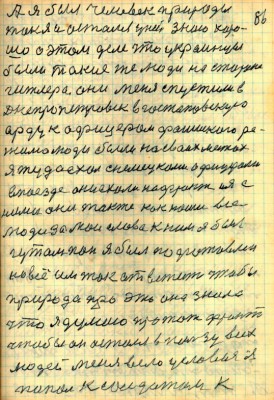 86
А я был человек природы
и я остался у ней знаю хоро-
шо о этом деле что украинцы
были такие же люди на стороне
гитлера, они меня спустили в
Днепропетровск в гостаповскую
к офицерам фашиского ре-
жима люди были на своих летах
я туда ехал с немецкими офицерами
в поезде они ехали на фронт и я с
ними они также как наши все
люди за мои слова к ним я был
гутоман я был подготовлен
на всё им так ответить чтобы
природа про это она знала
что я думаю про тот фронт
чтобы он остался в пользу всех
людей меня вело условия я
попал к солдатам к